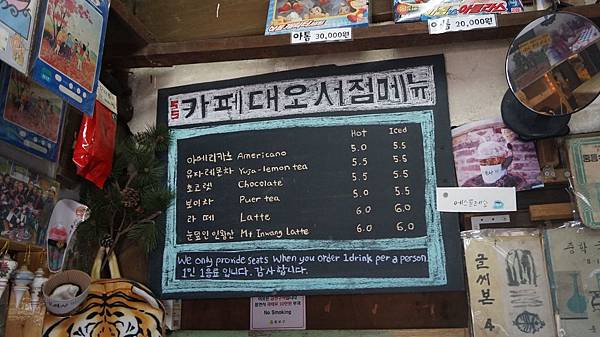 아톰 30,000원
20,000원
카페대오서점메뉴
Hot Iced
아메리카노 Americano 5.0 5.5
유자레몬차 Yuja-lemon tea 5.5 5.5
초코렛 Chocolate 5.5 5.5
보이차 Puer tea 5.0 5.5
라떼 Latte 6.0 6.0
눈덮인 인왕산 Mt Inwang Latte 6.0 6.0
We only provide seats when you order 1 drink per a person.
1인 1음료 입니다. 감사합니다.
No Smoking
글씨본
4